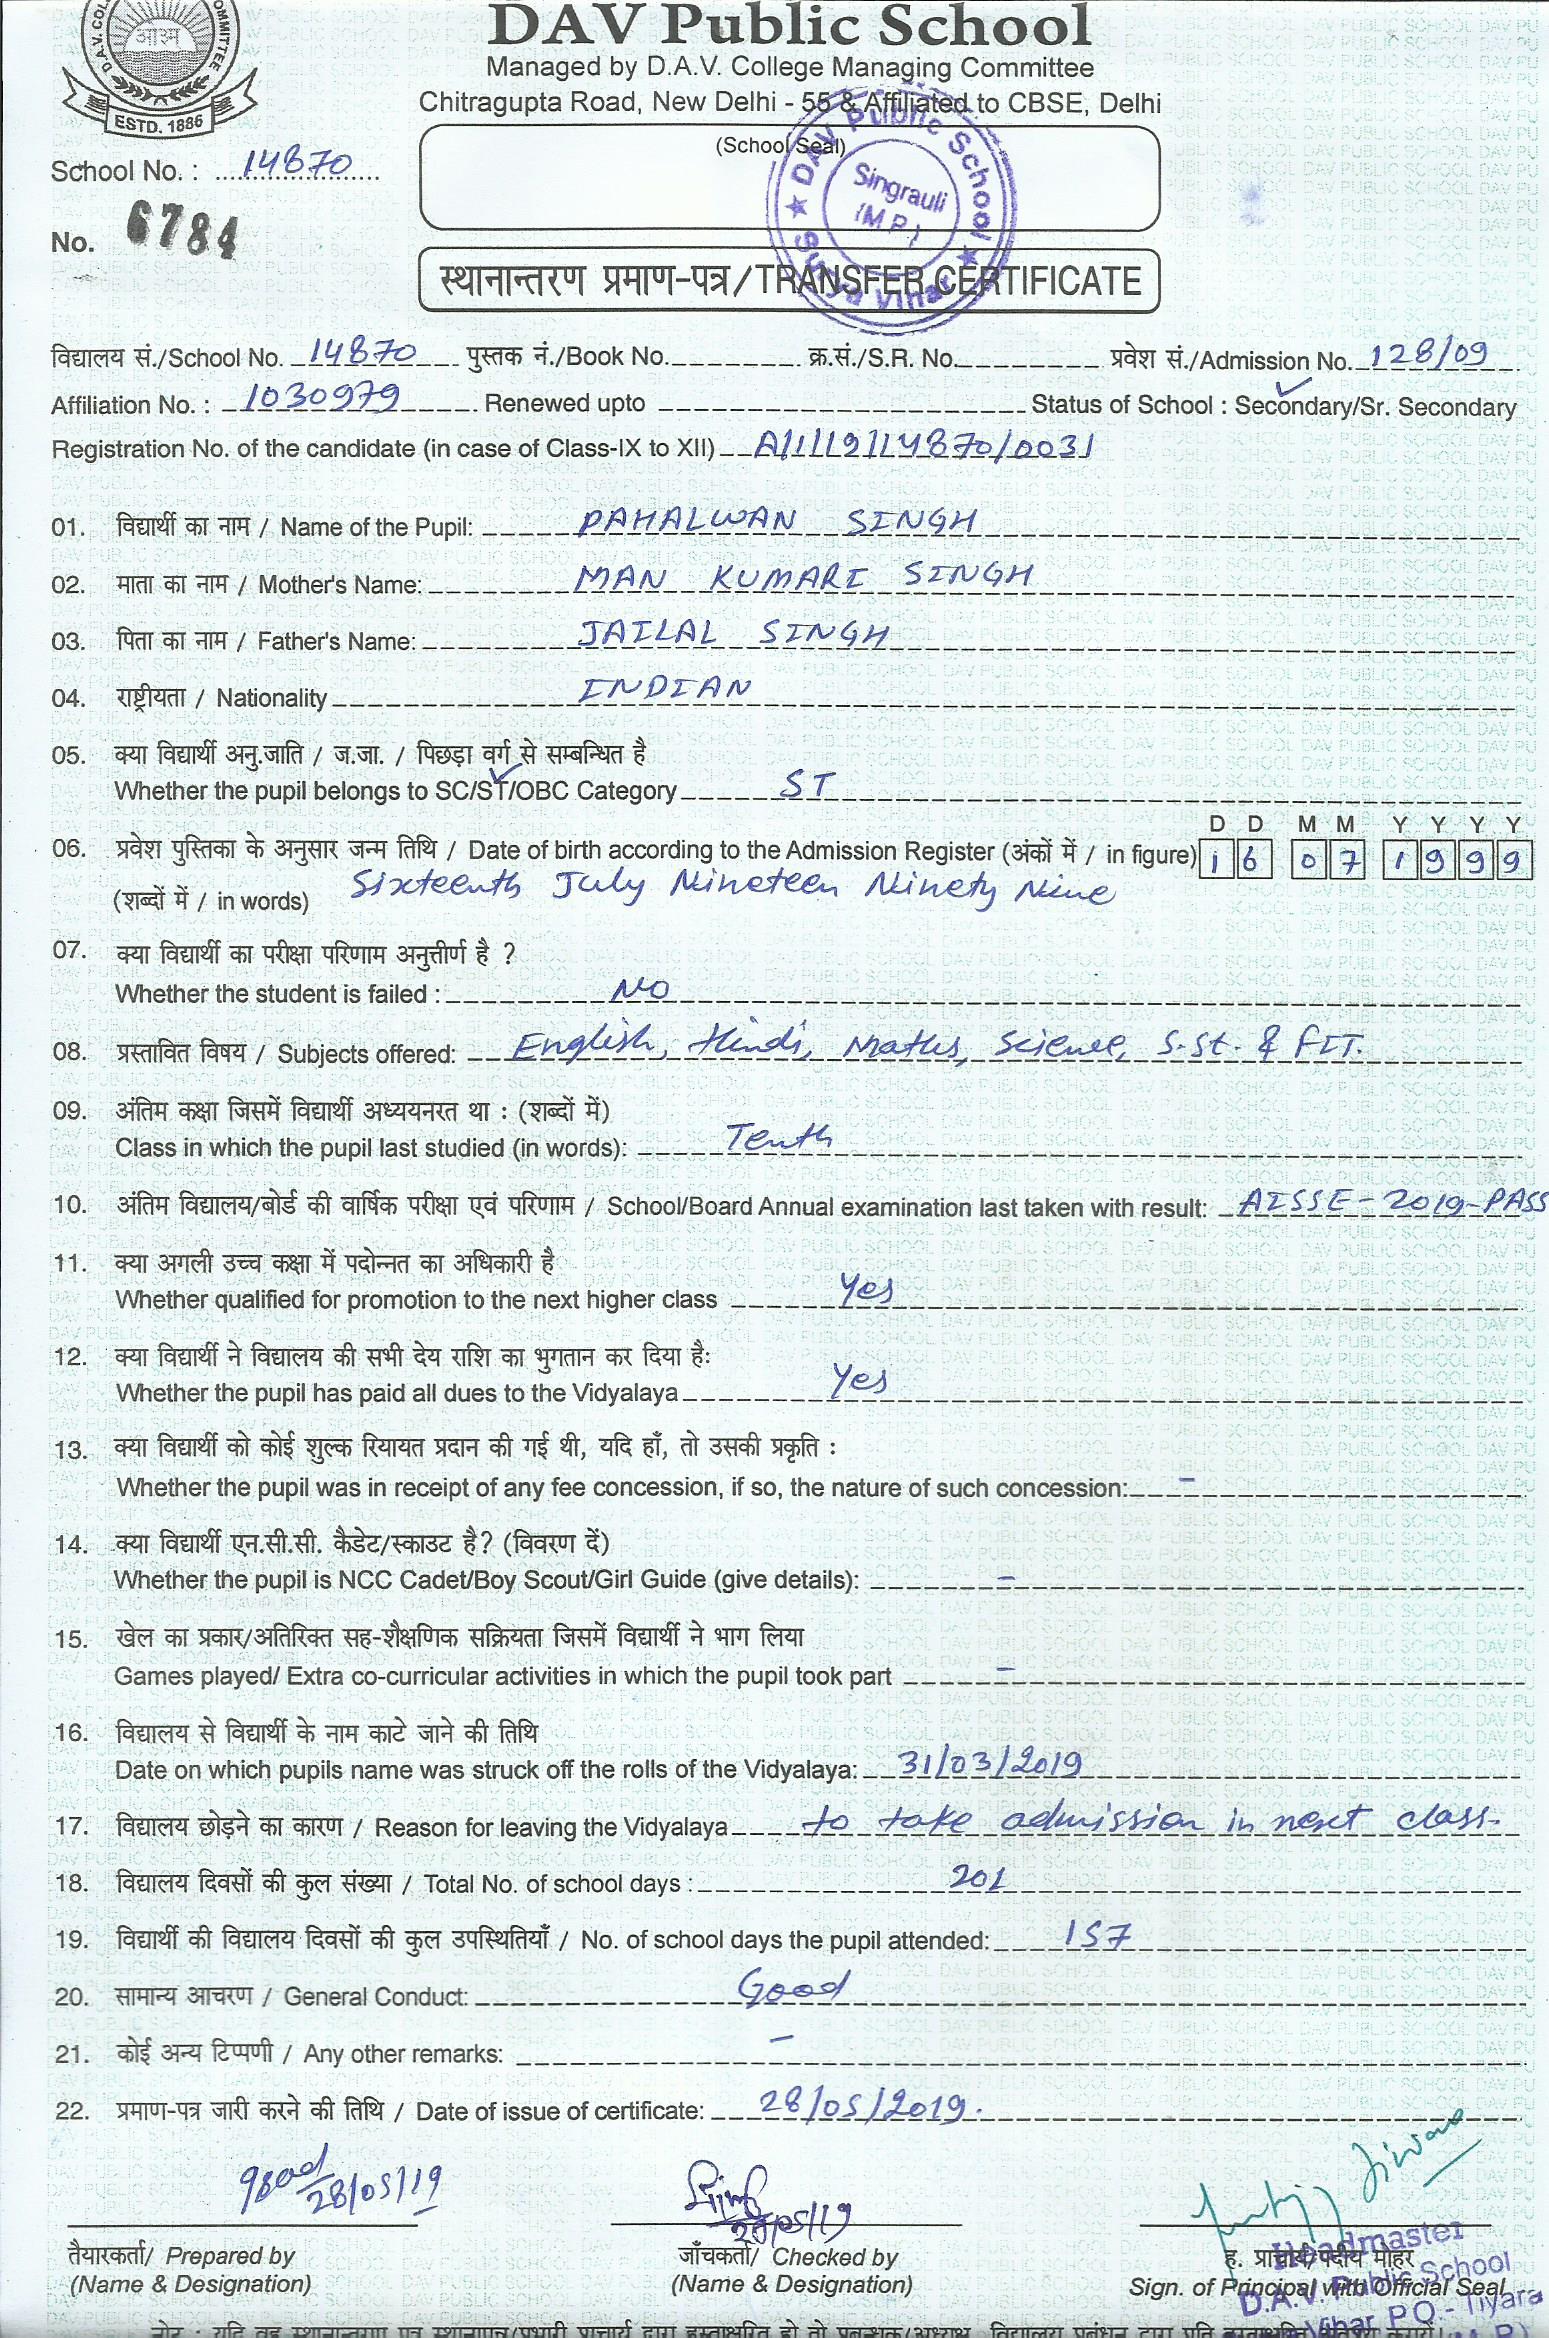 DAV Public School
Managed by D.A.V. College Managing Committee
Chitragupta Road, New Delhi - 55 & Affiliated to CBSE, Delhi
ESTD. 1886
(School Seal)
DAV Public School
Singrauli
(M.P.)
Surya Vihar
School No. : 14870
No. 6784
स्थानान्तरण प्रमाण-पत्र/TRANSFER CERTIFICATE
विद्यालय सं./School No. 14870 पुस्तक नं./Book No. क्र.सं./S.R. No. प्रवेश सं./Admission No. 128/09
Affiliation No. : 1030979 Renewed upto Status of School : Secondary/Sr. Secondary
Registration No. of the candidate (in case of Class-IX to XII) A/1/19/14870/0031
01. विद्यार्थी का नाम / Name of the Pupil: PAHALWAN SINGH
02. माता का नाम / Mother's Name: MAN KUMARI SINGH
03. पिता का नाम / Father's Name: JAILAL SINGH
04. राष्ट्रीयता / Nationality INDIAN
05. क्या विद्यार्थी अनु.जाति / ज.जा. / पिछड़ा वर्ग से सम्बन्धित है
Whether the pupil belongs to SC/ST/OBC Category ST
D D M M Y Y Y Y
06. प्रवेश पुस्तिका के अनुसार जन्म तिथि / Date of birth according to the Admission Register (अंकों में / in figure) 16 07 1999
(शब्दों में / in words) Sixteenth July Nineteen Ninety Nine
07. क्या विद्यार्थी का परीक्षा परिणाम अनुत्तीर्ण है ?
Whether the student is failed : NO
08. प्रस्तावित विषय / Subjects offered: English, Hindi, Maths, Science, S.St. & FIT.
09. अंतिम कक्षा जिसमें विद्यार्थी अध्ययनरत था : (शब्दों में)
Class in which the pupil last studied (in words): Tenth
10. अंतिम विद्यालय/बोर्ड की वार्षिक परीक्षा एवं परिणाम / School/Board Annual examination last taken with result: AISSE-2019-PASS
11. क्या अगली उच्च कक्षा में पदोन्नत का अधिकारी है
Whether qualified for promotion to the next higher class Yes
12. क्या विद्यार्थी ने विद्यालय की सभी देय राशि का भुगतान कर दिया है:
Whether the pupil has paid all dues to the Vidyalaya Yes
13. क्या विद्यार्थी को कोई शुल्क रियायत प्रदान की गई थी, यदि हाँ, तो उसकी प्रकृति :
Whether the pupil was in receipt of any fee concession, if so, the nature of such concession: -
14. क्या विद्यार्थी एन.सी.सी. कैडेट/स्काउट है? (विवरण दें)
Whether the pupil is NCC Cadet/Boy Scout/Girl Guide (give details): -
15. खेल का प्रकार/अतिरिक्त सह-शैक्षणिक सक्रियता जिसमें विद्यार्थी ने भाग लिया
Games played/ Extra co-curricular activities in which the pupil took part -
16. विद्यालय से विद्यार्थी के नाम काटे जाने की तिथि
Date on which pupils name was struck off the rolls of the Vidyalaya: 31/03/2019
17. विद्यालय छोड़ने का कारण / Reason for leaving the Vidyalaya to take admission in next class.
18. विद्यालय दिवसों की कुल संख्या / Total No. of school days : 201
19. विद्यार्थी की विद्यालय दिवसों की कुल उपस्थितियाँ / No. of school days the pupil attended: 157
20. सामान्य आचरण / General Conduct: Good
21. कोई अन्य टिप्पणी / Any other remarks: -
22. प्रमाण-पत्र जारी करने की तिथि / Date of issue of certificate: 28/05/2019.
28/05/19
तैयारकर्ता/ Prepared by जाँचकर्ता/ Checked by ह. प्राचार्य/पदीय मोहर
(Name & Designation) (Name & Designation) Sign. of Principal with Official Seal
Headmaster
D.A.V. Public School
Vihar P.O.- Tiyara
नोट : यदि वह स्थानान्तरण पत्र स्थानापन्न/प्रभारी प्राचार्य द्वारा हस्ताक्षरित हो तो प्रबन्धक/अध्यक्ष, विद्यालय प्रबंधन द्वारा प्रति हस्ताक्षरित